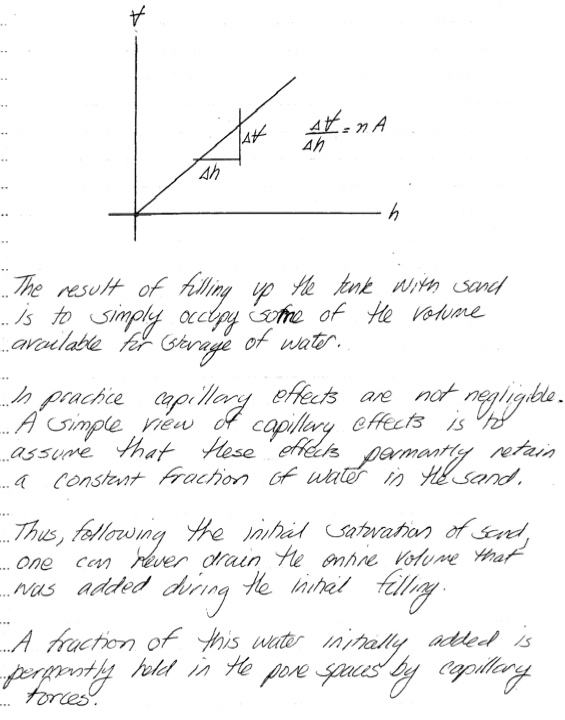 V
ΔV
Δh
ΔV/Δh = n A
h
The result of filling up the tank with sand
is to simply occupy some of the volume
available for storage of water.
In practice capillary effects are not negligible.
A simple view of capillary effects is to
assume that these effects permantly retain
a constant fraction of water in the sand.
Thus, following the initial saturation of sand,
one can never drain the entire volume that
was added during the initial filling.
A fraction of this water initially added is
permantly held in the pore spaces by capillary
forces.